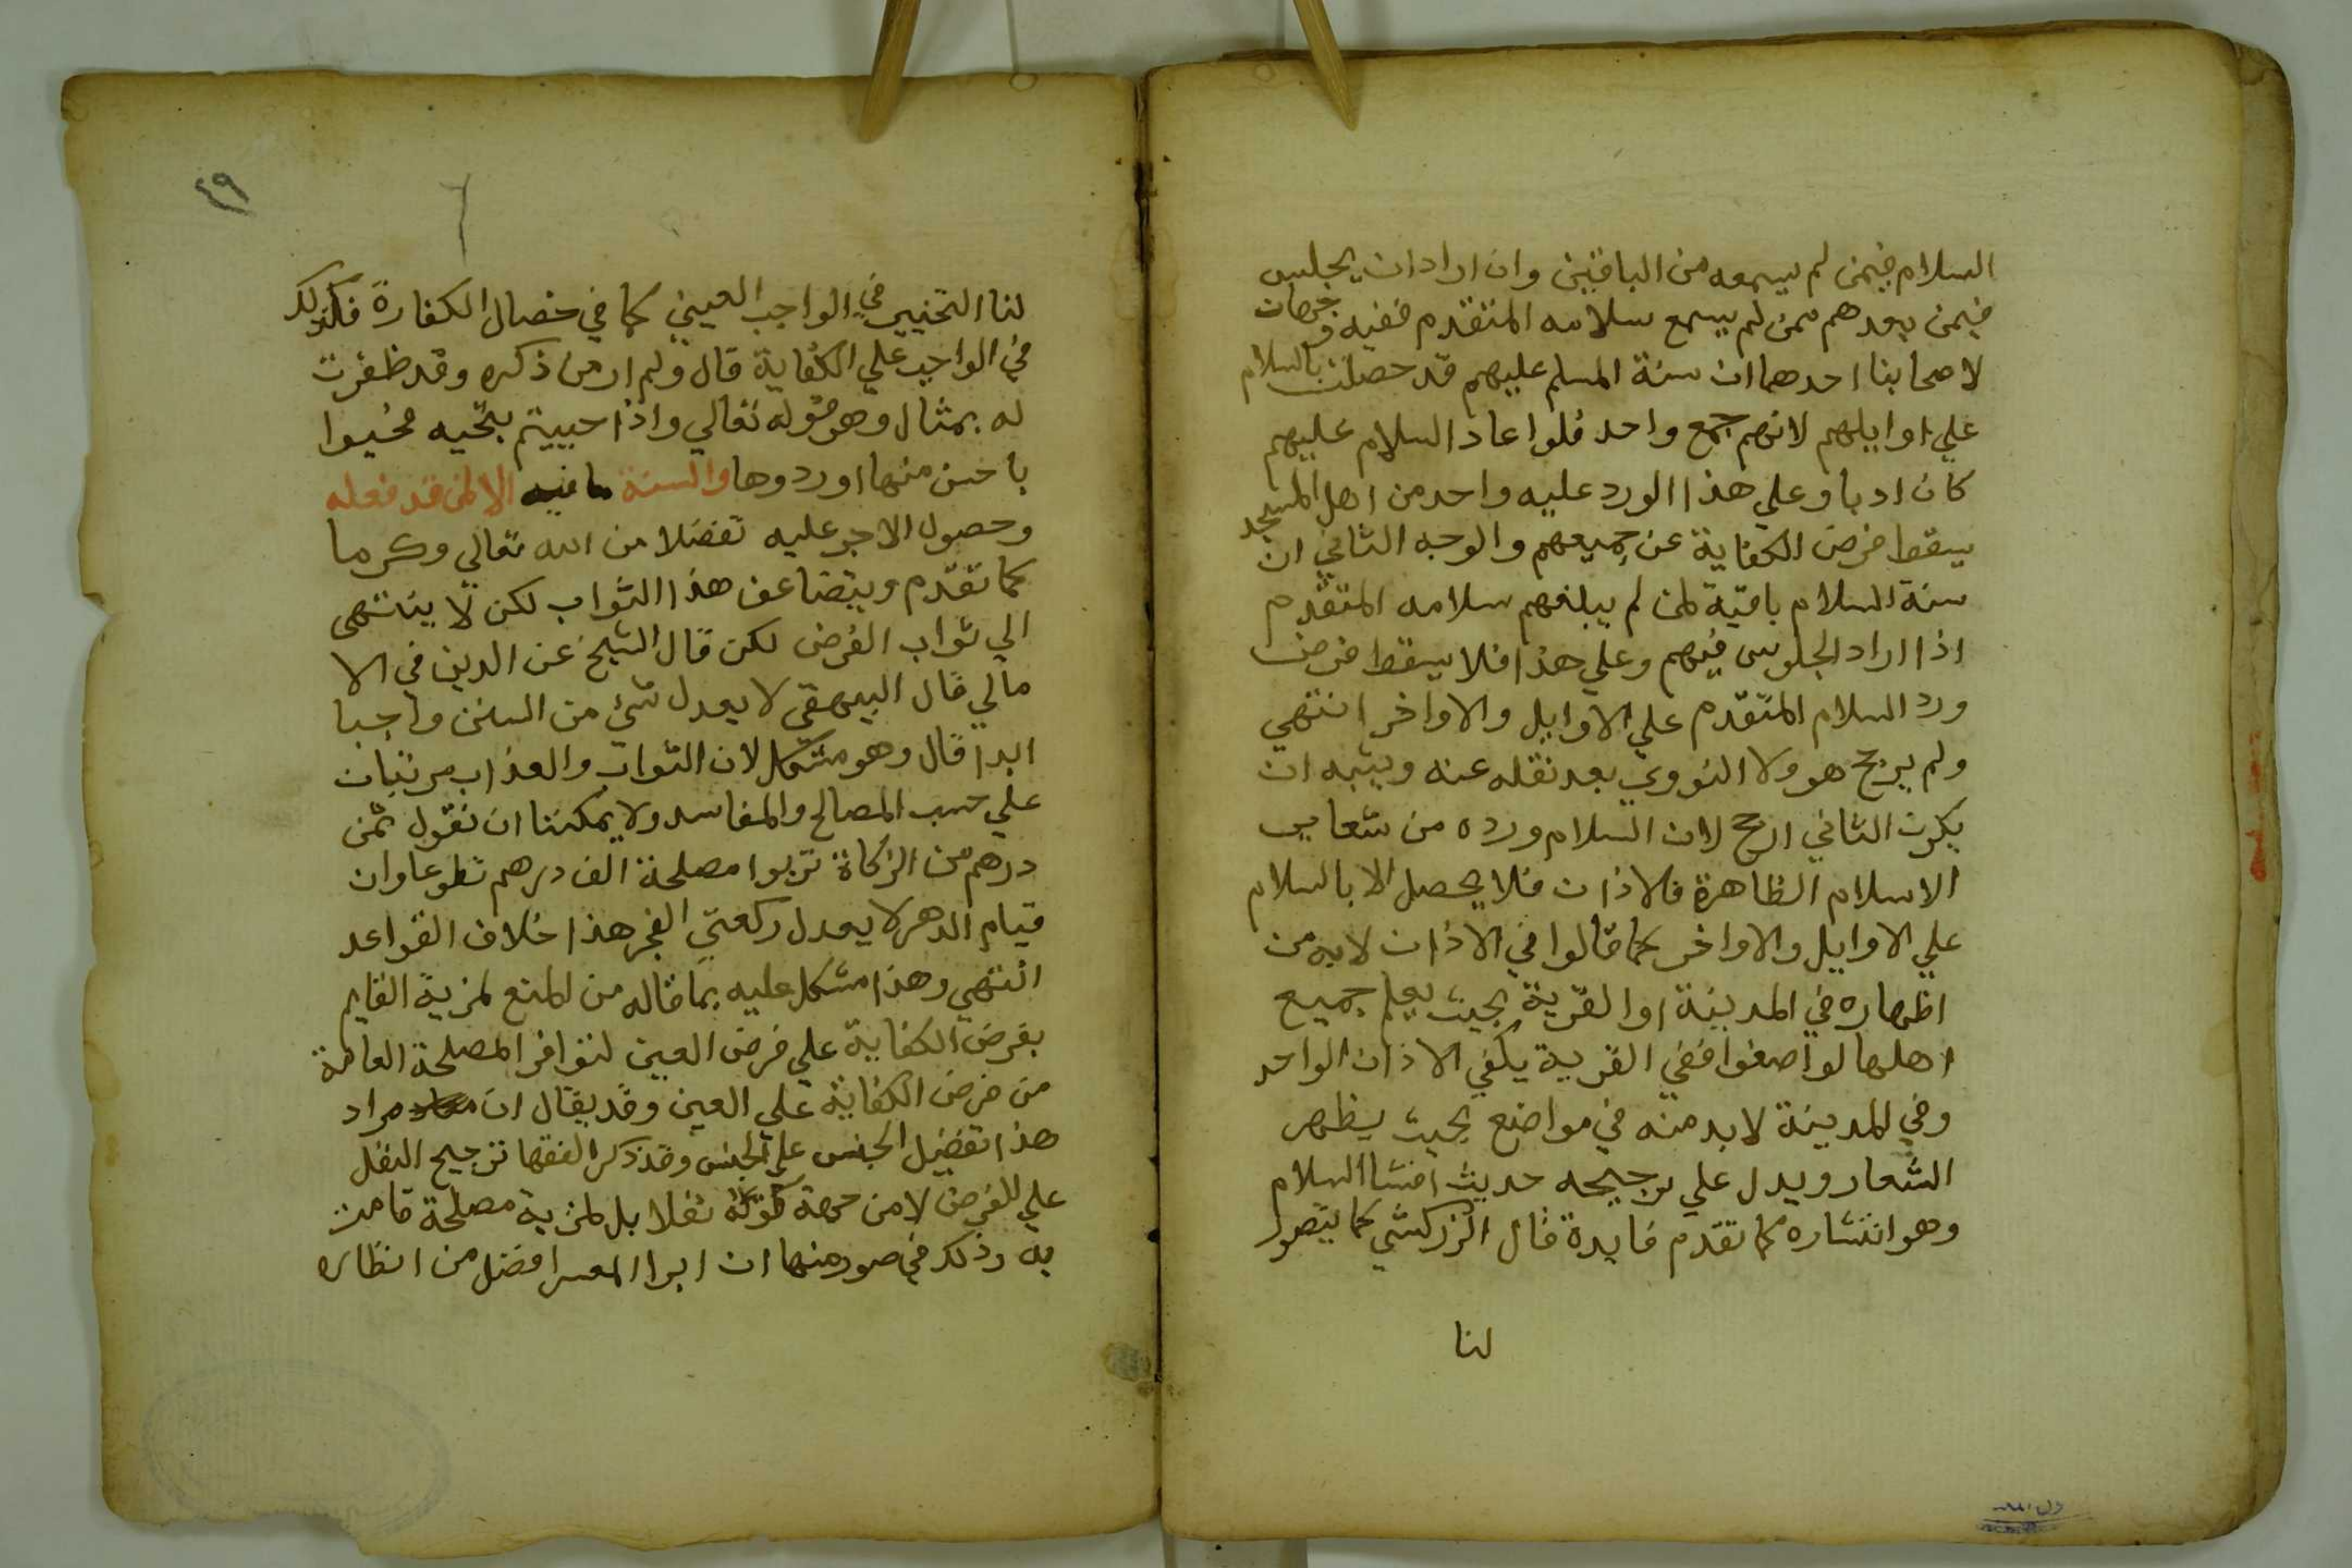 السلام فيمن لم يسمعه من الباقين وان اراد ان يجلس
فيمن بعدهم ممن لم يسمع سلامه المتقدم ففيه وجهان
لاصحابنا احدهما ان سنة المسلم عليهم قد حصلت بالسلام
علي اوايلهم لانهم جمع واحد فلوا عاد السلام عليهم
كان ادبا وعلي هذا الورد عليه واحد من اهل المسجد
يسقط فرض الكفاية عن جميعهم والوجه الثاني ان
سنة السلام باقية لمن لم يبلغهم سلامه المتقدم
اذا اراد الجلوس فيهم وعلي هذا فلا يسقط فرض
ورد السلام المتقدم علي الاوايل والاواخر انتهي
ولم يرجح هو ولا النووي بعد نقله عنه ويشبه ان
يكون الثاني ارجح لان السلام ورده من شعاير
الاسلام الظاهرة فالاذان فلا يحصل الا بالسلام
علي الاوايل والاواخر كما قالوا في الاذان لابد من
اظهاره في المدينة او القرية بحيث يعلم جميع
اهلها لو اصغوا ففي القرية يكفي الاذان الواحد
وفي المدينة لابد منه في مواضع بحيث يظهر
الشعار ويدل علي ترجيحه حديث افشا السلام
وهو انتشاره كما تقدم فايدة قال الزركشي كما يتصور
لنا
٤٩
لنا التخيير في الواجب العيني كما في خصال الكفارة فكذلك
في الواجب علي الكفاية قال ولم ار من ذكره وقد ظفرت
له بمثال وهو قوله تعالي واذا حييتم بتحيه فحيوا
باحسن منها او ردوها والسنة ما فيه الا لمن قد فعله
وحصول الاجر عليه تفضلا من الله تعالي وكرما
كما تقدم ويتضاعف هذا الثواب لكن لا ينتهي
الي ثواب الفرض لكن قال الشيخ عز الدين في الا
مالي قال البيهقي لا يعدل شيء من السنن واجبا
ابدا قال وهو مشكل لان الثواب والعذاب مرتبان
علي حسب المصالح والمفاسد ولا يمكننا ان نقول ثمن
درهم من الزكاة تربوا مصلحة الف درهم تطوعا وان
قيام الدهر لا يعدل ركعتي الفجر هذا خلاف القواعد
انتهي وهذا مشكل عليه بما قاله من المنع لمزية القايم
بفرض الكفاية علي فرض العين لتوافر المصلحة العامة
من فرض الكفاية علي العين وقد يقال ان مراد
هذا تفضيل الجنس علي الجنس وقد ذكر الفقها ترجيح النفل
علي للفرض لا من جهة كونه نفلا بل لمزية مصلحة قامت
به وذلك في صور منها ان ابرا المعسر افضل من انظاره